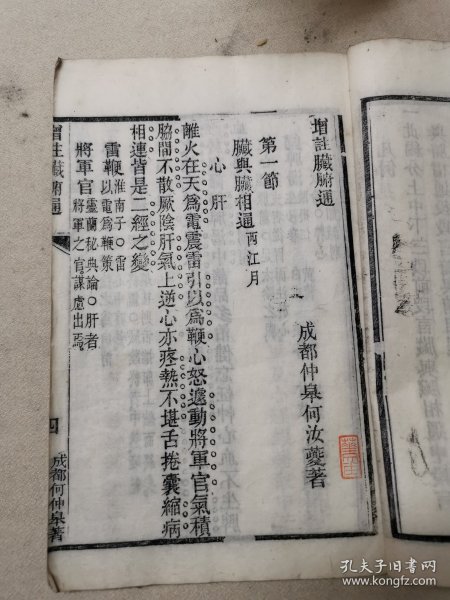 增註臟腑通
成都仲臯何汝夔著
第一節
臟與臟相通西江月
心肝
離火在天爲電震雷引以爲鞭心怒遽動將軍官氣積
脇間不散厥陰肝氣上逆心亦疼熱不堪舌捲囊縮病
相連皆是二經之變
雷鞭淮南子○雷以電爲鞭策
將軍官靈蘭秘典論○肝者將軍之官謀慮出焉
增註臟腑通
四
成都何仲臯著
孔夫子旧书网
www.kongfz.com